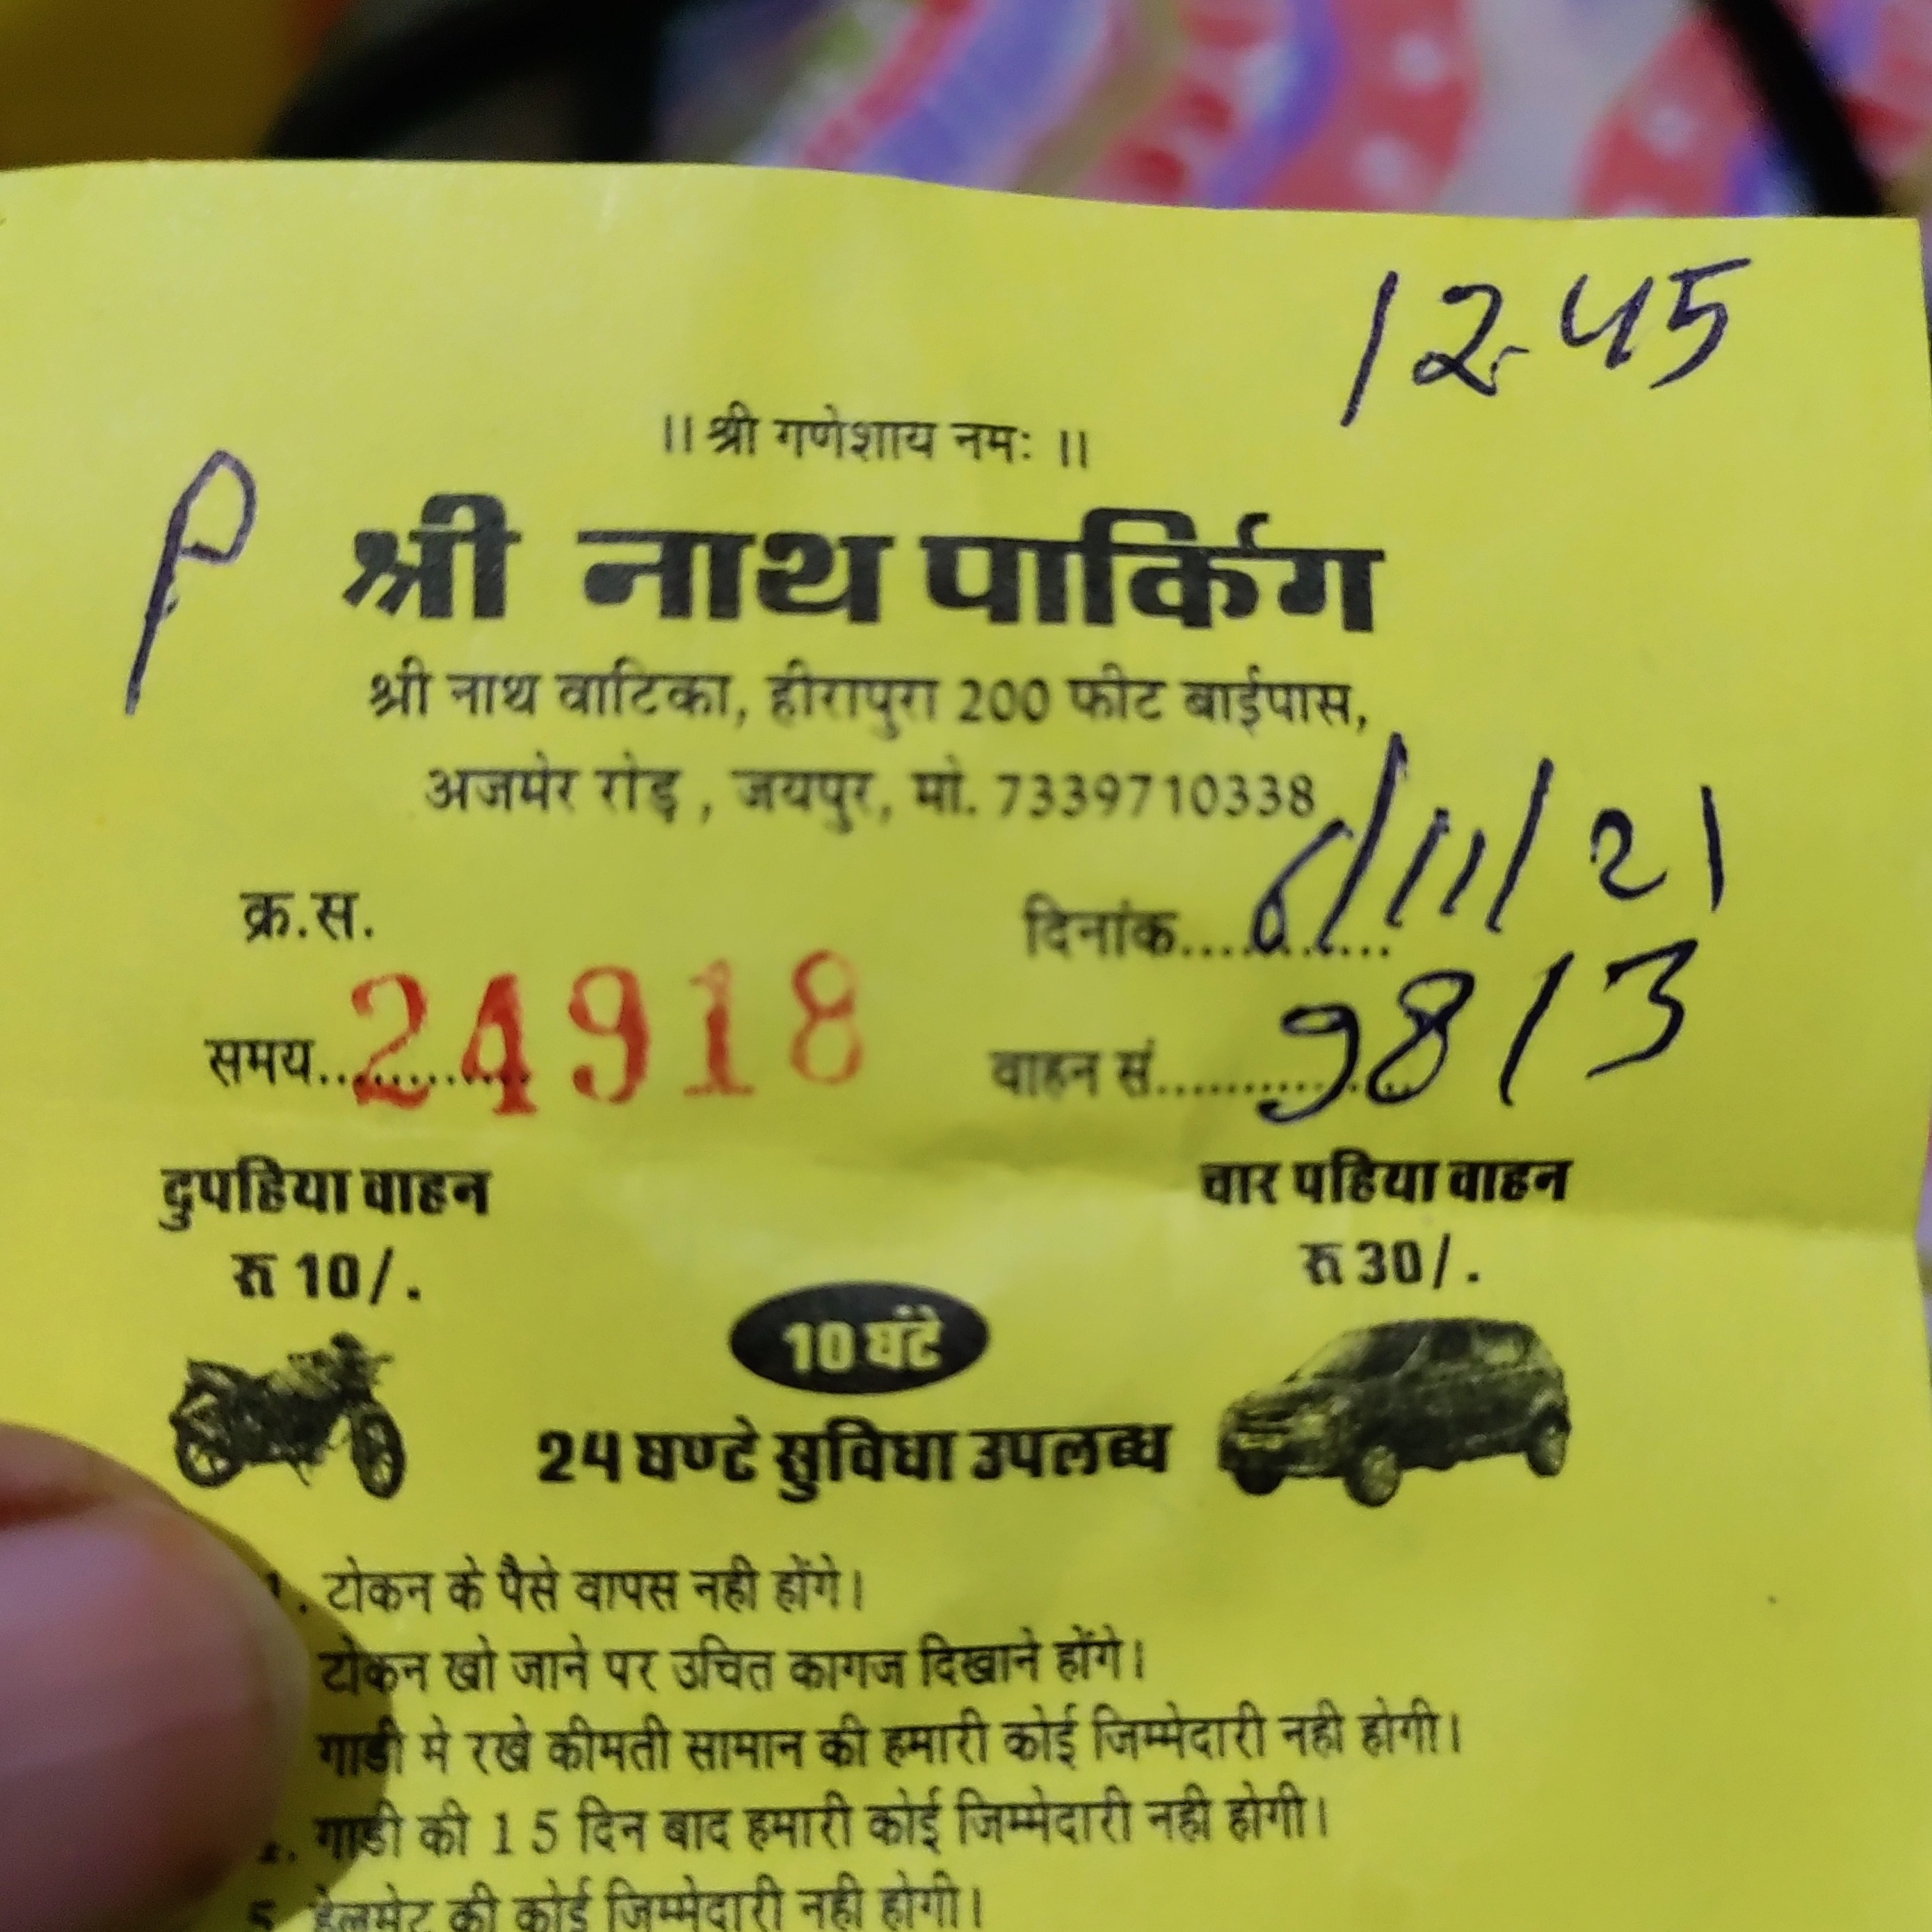 12-45
।। श्री गणेशाय नमः ।।
P
श्री नाथ पार्किग
श्री नाथ वाटिका, हीरापुरा 200 फीट बाईपास,
अजमेर रोड़ , जयपुर, मो. 7339710338
क्र.स. दिनांक........... 6/11/21
समय............ 24918 वाहन सं................ 9813
दुपहिया वाहन चार पहिया वाहन
रू 10/. रू 30/.
10 घंटे
24 घण्टे सुविधा उपलब्ध
टोकन के पैसे वापस नही होंगे।
टोकन खो जाने पर उचित कागज दिखाने होंगे।
गाडी मे रखे कीमती सामान की हमारी कोई जिम्मेदारी नही होगी।
गाडी की 15 दिन बाद हमारी कोई जिम्मेदारी नही होगी।
5. हेलमेट की कोई जिम्मेदारी नही होगी।